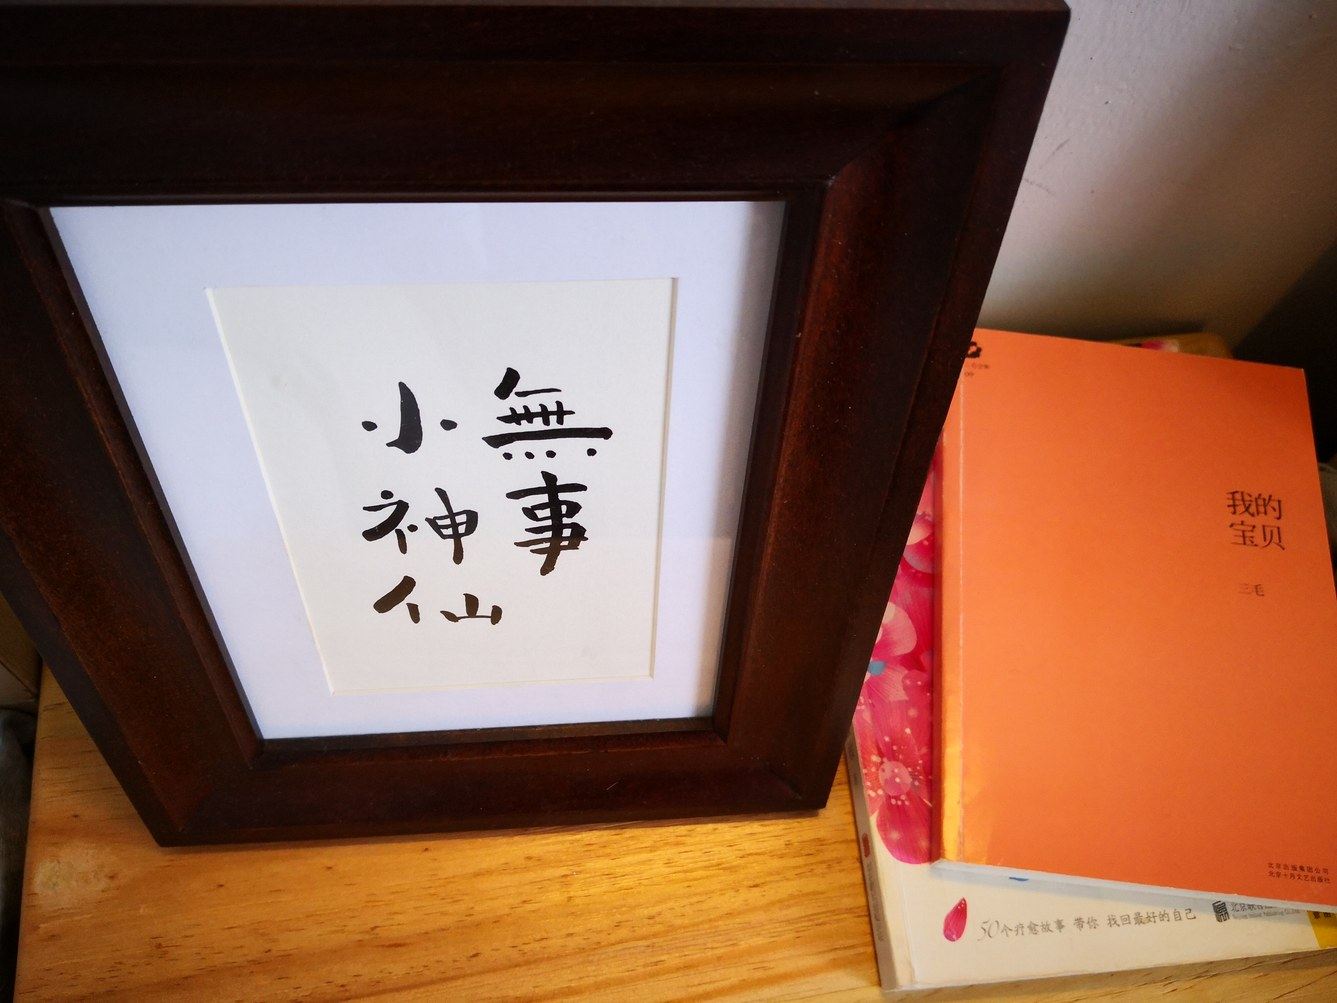 無事
小神仙
我的
宝贝
三毛
北京出版集团公司
北京十月文艺出版社
50个疗愈故事 带你 找回最好的自己